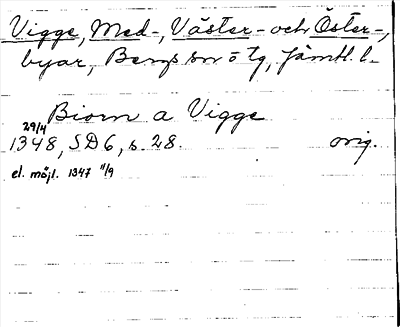 Vigge, Med-, Väster- och Öster-,
byar, Bergs sn o tg, Jämtl. l.
Biorn a Vigge
29/4
1348, SD6, s. 28. orig.
el. möjl. 1347 11/9